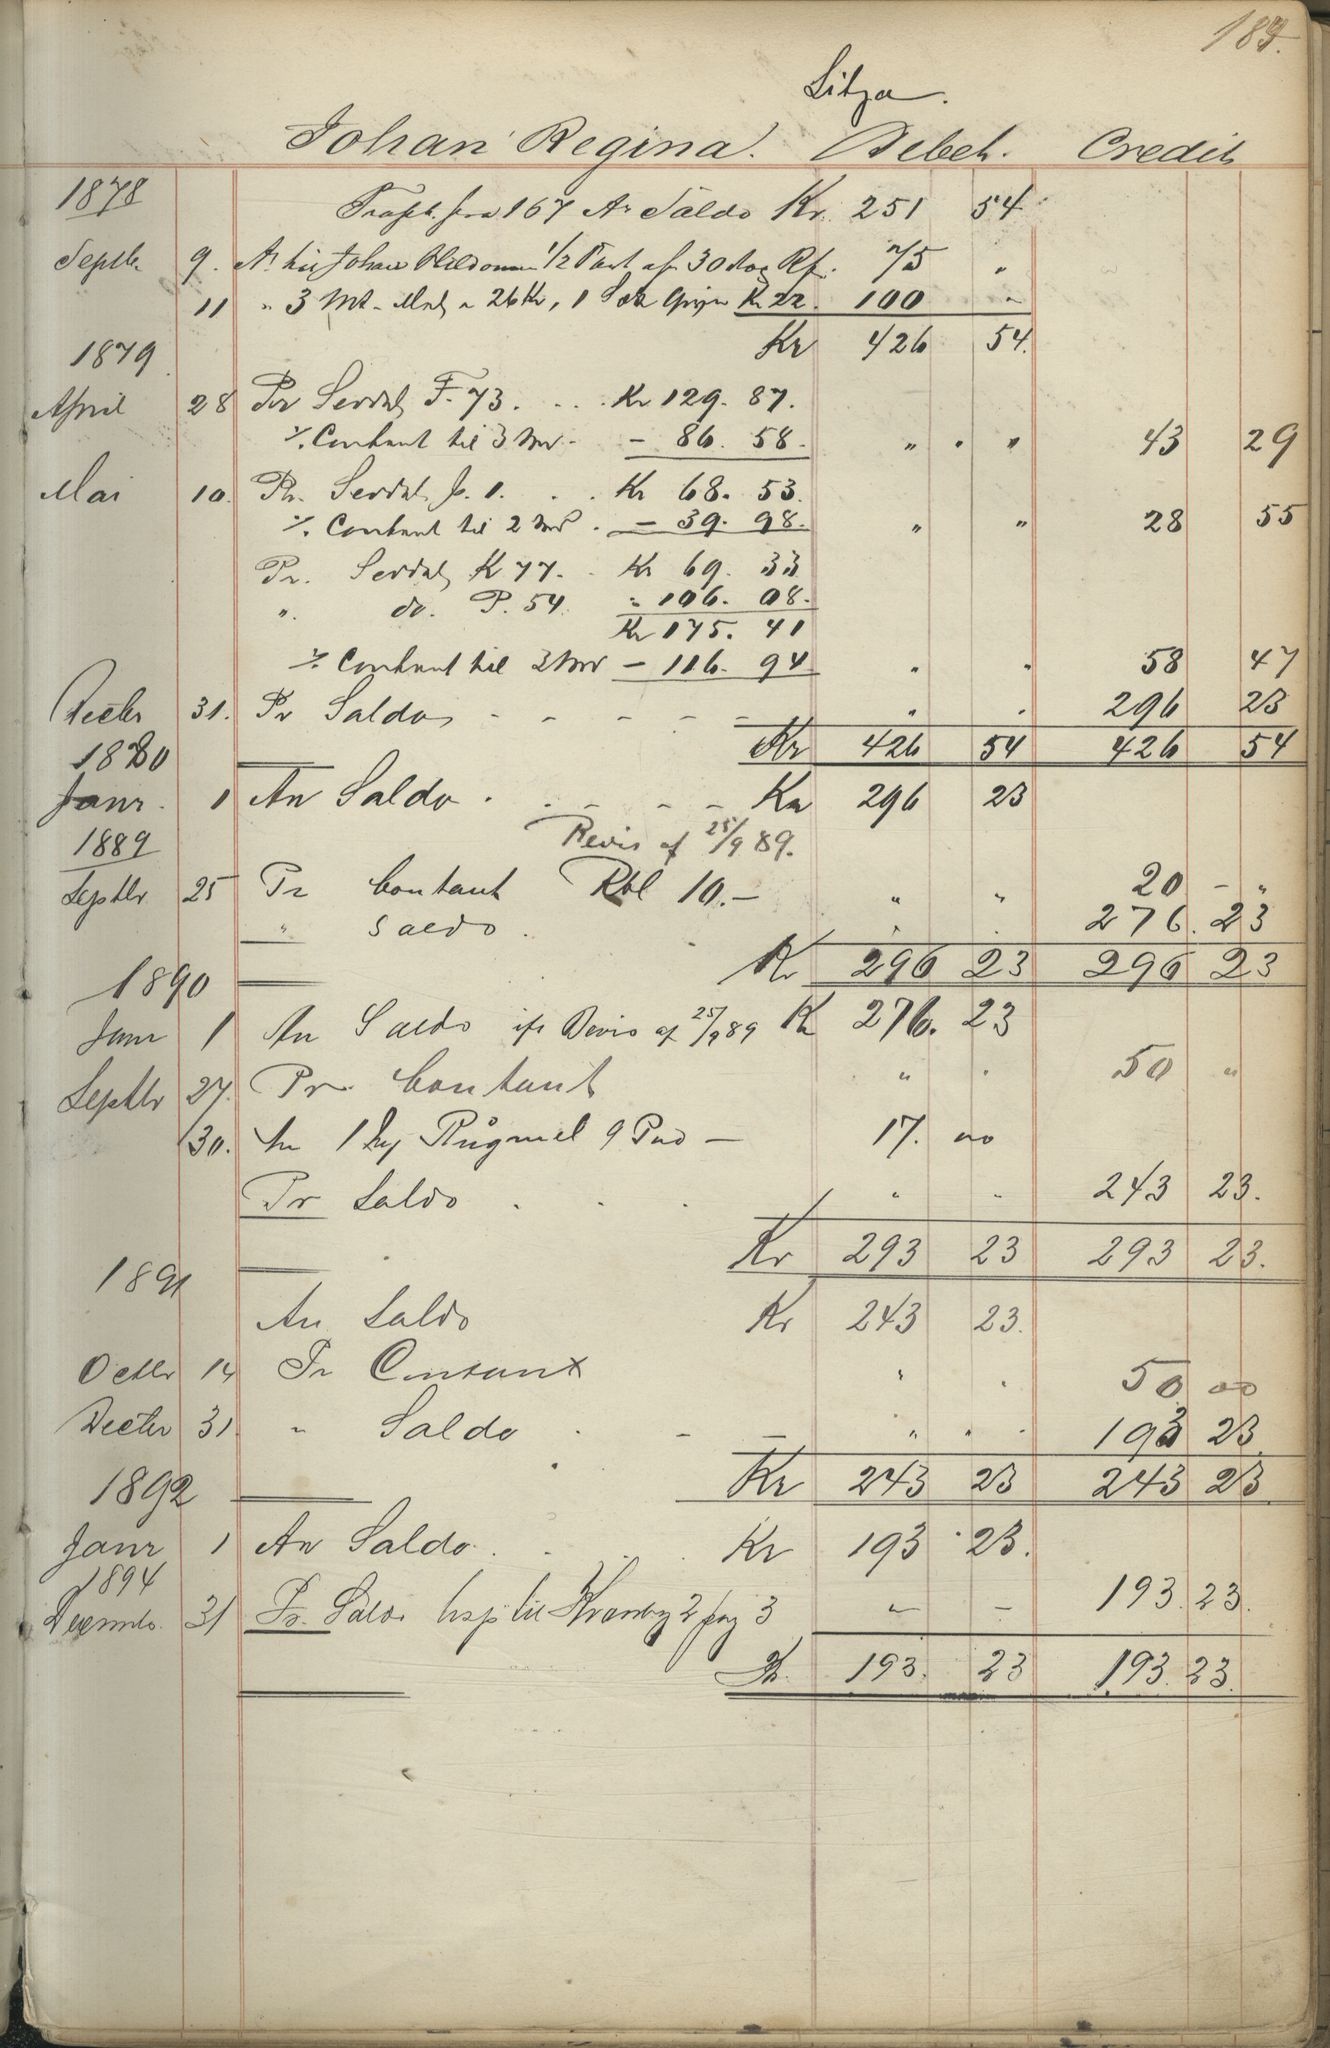 Litza.
Johan Regina. Debet. Credit
1878
Transpt. fra 167 An Saldo Kr 251 54
Septb. 9. An Johan 1/2 Part af 30 Rf. 75 "
11 " 3 Mt. a 26 Kr, 1 Sæk Kr 22. 100 "
Kr 426 54.
1879
April 28 Pr Serdtl F. 73. . . . Kr 129. 87.
%. Contant til 3 Md. - 86. 58. " " " 43 29
Mai 10. Pr. Serdtl 1. . . . Kr 68. 53.
%. Contant til 2 Md. - 39. 98. " " 28 55
Pr. Serdtl K 77. . Kr 69. 33
" do. P. 54 " 106. 08.
Kr 175. 41
%. Contant til - 116. 94 " " 58 47
Decbr 31. Pr Saldo - - - - - " " 296 23
Kr 426 54 426 54
1880
Janr. 1 An Saldo . . - - - - Kr 296 23
Revis af 25/9 89.
1889
Septbr 25 Pr Contant Rbl 10.- " " 20 - "
" Saldo . " . 276. 23
Kr 296 23 296 23
1890
Janr 1 An Saldo Revis af 25/9 89 Kr 276. 23
Septbr 27. Pr. Contant " " 50 "
30. An 1 Rugmel 9 Pud - 17. 00
Pr Saldo . . . " " 243 23.
Kr 293 23 293 23.
1891
An Saldo Kr 243 23.
Octbr 14 Pr Contant " . 50 00
Decbr 31 " Saldo . - - " " . 193 23.
Kr 243 23 243 23
1892
Janr 1 An Saldo . . . Kr 193 23.
1894
31 Pr. Saldo til 2 pag 3 - - 193. 23.
Kr. 193. 23 193. 23.